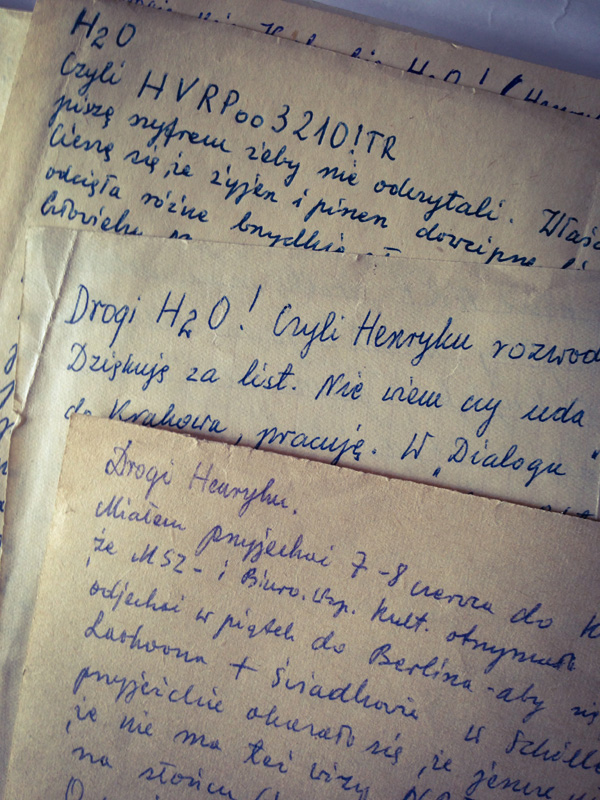 H2O! (Henryk
H2O
Czyli HVRPoo3210!TR
piszę szyfrem żeby nie odczytali. Właś
Cieszę się, że żyjesz i piszesz dowcipne li
odcięta różne brzydkie
Człowieku
Drogi H2O! Czyli Henryku rozwod
Dziękuję za list. Nie wiem czy uda
do Krakowa, pracuję. W „Dialogu"
Drogi Henryku.
Miałem przyjechać 7-8 czerwca do K
że MSZ- i Biuro. Wsp. Kult. otrzymało
odjechać w piątek do Berlina - aby się
Laokoona + Świadkowie w Schille
przyjeździe okazało się, że jeszcze
że nie ma też wizy
na słońcu